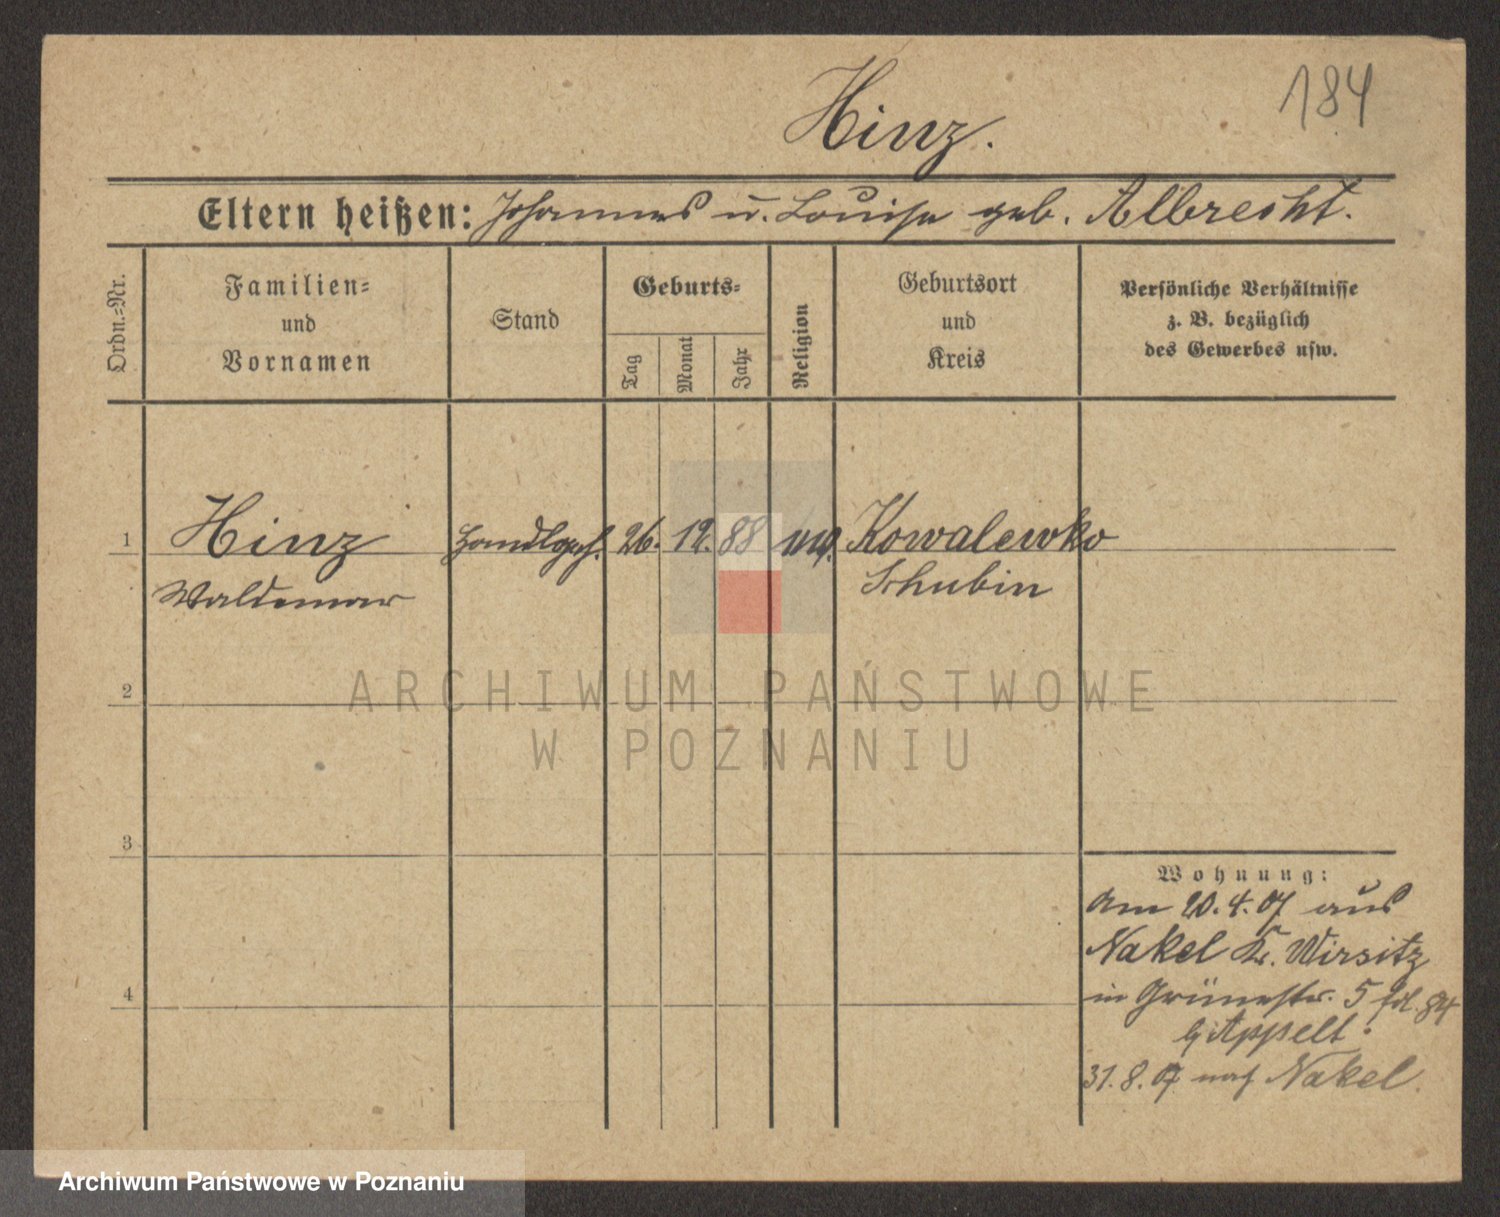 184
Hinz.
Eltern heißen: Johannes u. Louise geb. Albrecht.
Ordn.=Nr.
Familien=
und
Vornamen
Stand
Geburts=
Tag
Monat
Jahr
Religion
Geburtsort
und
Kreis
Persönliche Verhältnisse
z. B. bezüglich
des Gewerbes usw.
1 Hinz Handlgsgeh. 26. 12. 88 Kowalewko
Waldemar Schubin
2
ARCHIWUM PAŃSTWOWE
W POZNANIU
3
Wohnung:
Am 20.4.07 aus
Nakel Kr. Wirsitz
4
in Grünestr. 5 fol. 84
b/ Appelt.
31.8.07 nach Nakel.
Archiwum Państwowe w Poznaniu